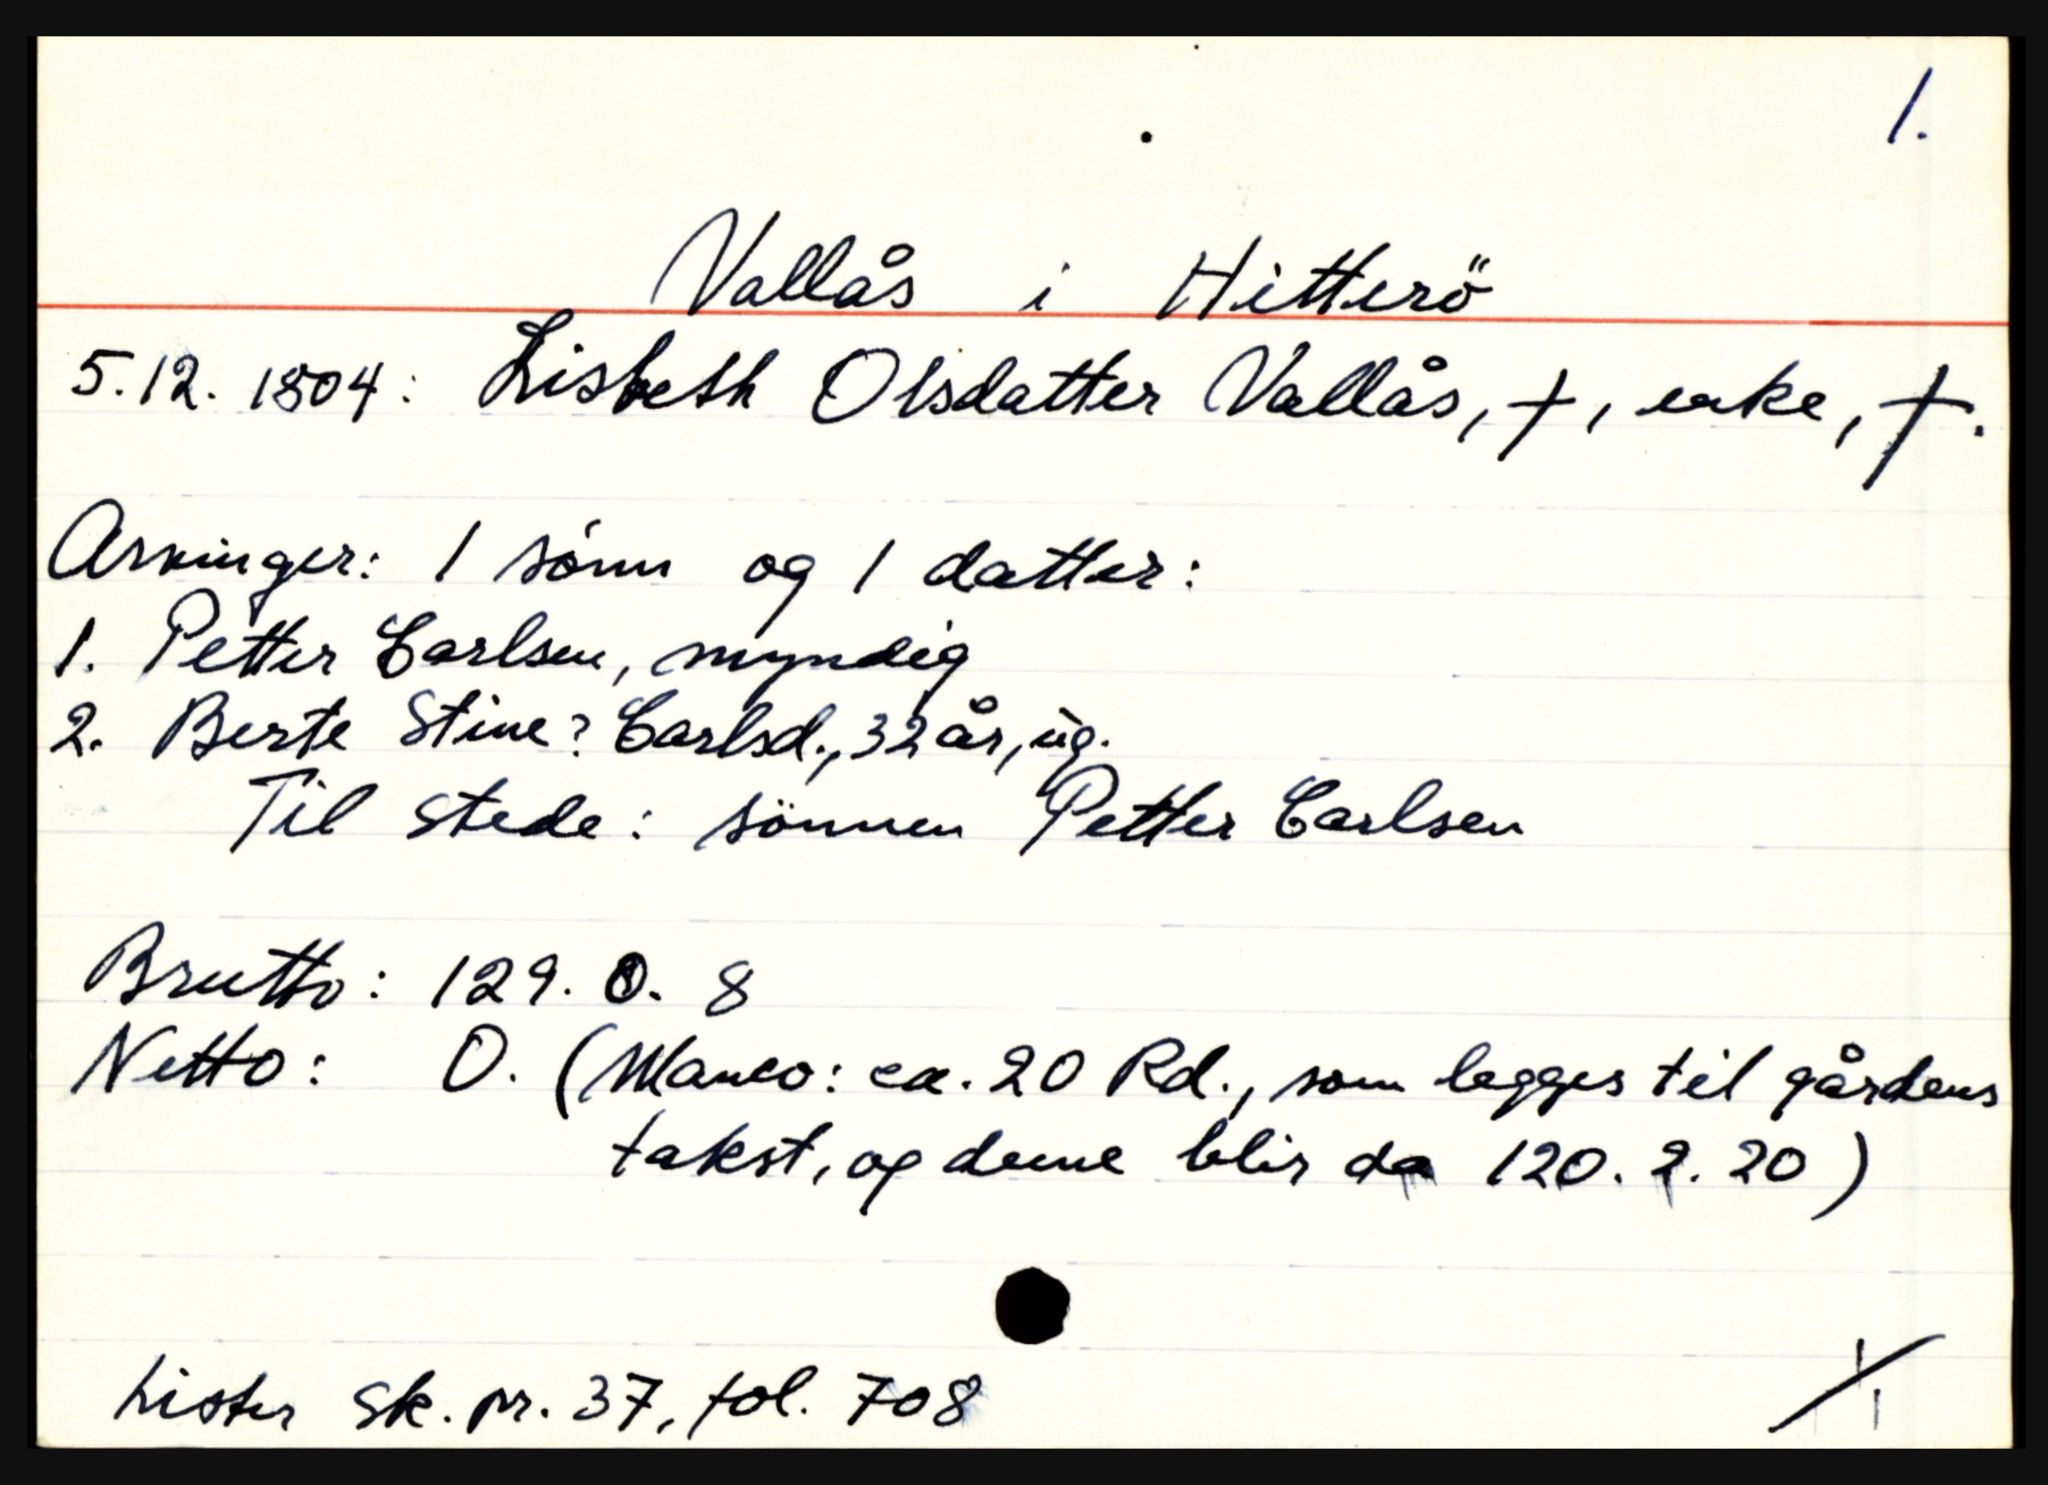 1.
Vallås i Hitterö
5.12. 1804: Lisbeth Olsdatter Vallås, †, enke, †.
Arvinger: 1 sönn og 1 datter:
1. Petter Carlsen, myndig
2. Berte Stine? Carlsd., 32 år, ug.
Til stede: sönnen Petter Carlsen
Brutto: 129. 0. 8
Netto: 0. (Manco: ca. 20 Rd., som legges til gårdens
takst, og denne blir da 120. 2. 20)
Lister sk. pr. 37, fol. 708
1/1